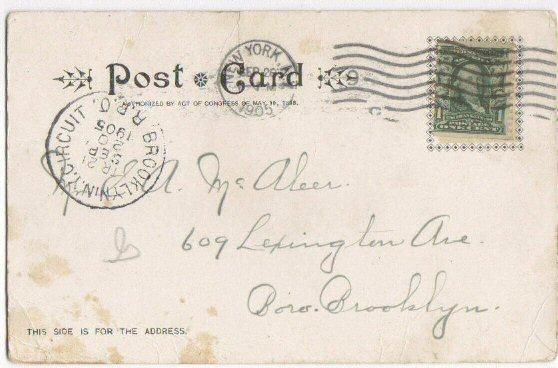 Post Card
AUTHORIZED BY ACT OF CONGRESS OF MAY 19, 1898.
NEW YORK, N.Y.
1905
BROOKLYN N.Y. CIRCUIT R.P.O.
1905
ONE CENT
A. McAleer.
609 Lexington Ave.
Boro. Brooklyn.
THIS SIDE IS FOR THE ADDRESS.